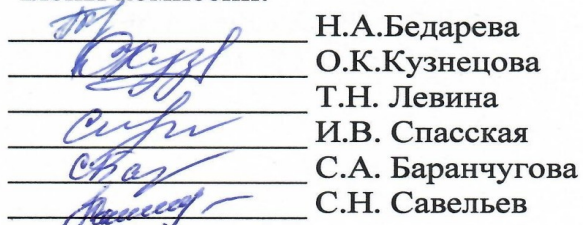 Н.А.Бедарева
О.К.Кузнецова
Т.Н. Левина
И.В. Спасская
С.А. Баранчугова
С.Н. Савельев